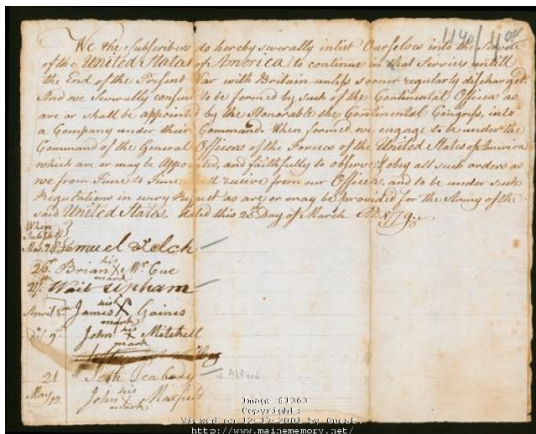 1140 / 400
We the Subscribers do hereby severally inlist Ourselves into the Service
of the United States of America to continue in that Service untill
the End of the Present War with Britain unless sooner regularly dischar ged
And we severally consent to be formed by such of the Continental Officers as
are or shall be appointed by the Honorable the Continental Congress, into
a Company under their Command. When formed we engage to be under the
Command of the General Officers of the Forces of the United States of America
which are or may be Appointed and faithfully to observe & obey all such orders as
we from Time to Time shall receive from our Officers, and to be under such
Regulations in every Respect as are or may be provided for the Army of the
said United States. Dated this 26 Day of March AD 1779
When
Inlisted
Mar. 26 Samuel Felch
26 Brian his X mark McCue
27 Wait Upham
April 5 James his X mark Gaines
9 John his X mark Mitchell
21 Seth Peabody
May 12 John his X mark
Image 61363
Copyright:
Viewed on 12-17-2001 by Guest.
http://www.mainememory.net/